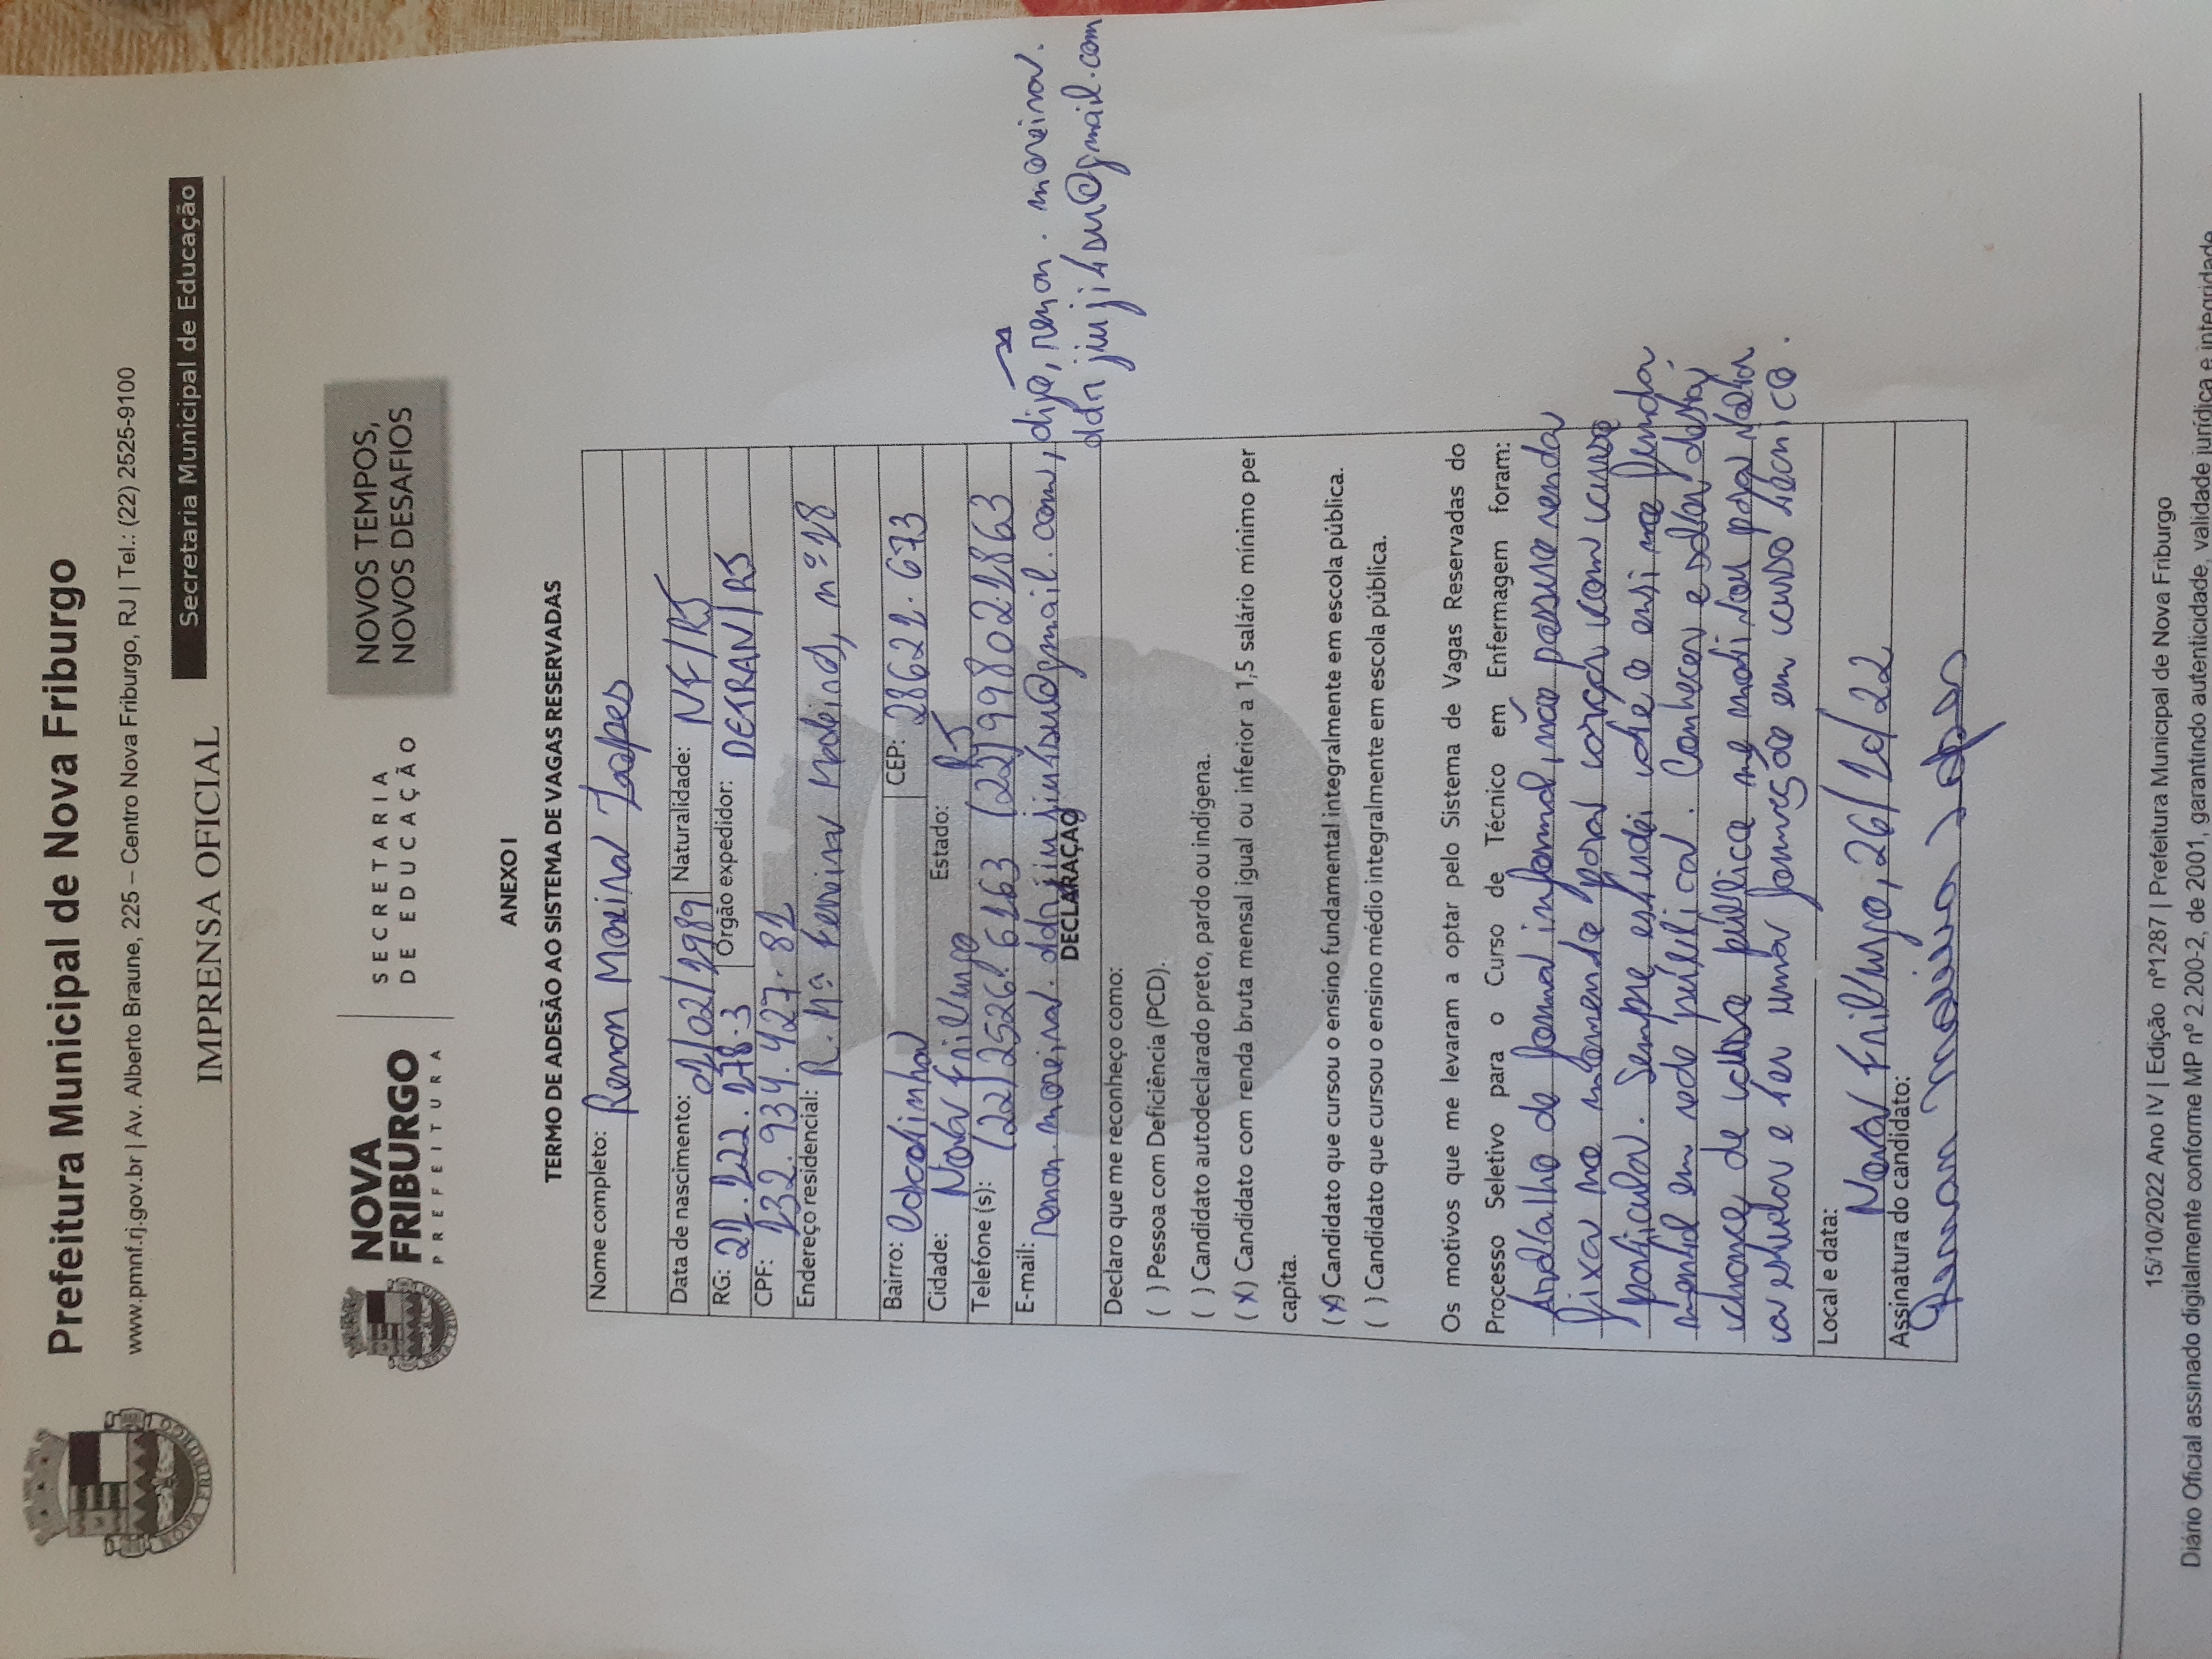 Prefeitura Municipal de Nova Friburgo
www.pmnf.rj.gov.br | Av. Alberto Braune, 225 – Centro Nova Friburgo, RJ | Tel.: (22) 2525-9100
Secretaria Municipal de Educação
IMPRENSA OFICIAL
NOVA FRIBURGO
NOVA
FRIBURGO
PREFEITURA
SECRETARIA
DE EDUCAÇÃO
NOVOS TEMPOS,
NOVOS DESAFIOS
ANEXO I
TERMO DE ADESÃO AO SISTEMA DE VAGAS RESERVADAS
Nome completo: Renan Moreira Lopes
Data de nascimento: 01/02/1989 Naturalidade: NF/RJ
RG: 21.122.178-3 Órgão expedidor: DETRAN/RJ
CPF: 132.934.427-81
Endereço residencial: R. Mª Ferreira Madeira, nº 18
Bairro: Cascatinha CEP: 28621-673
Cidade: Nova Friburgo Estado: RJ
Telefone (s): (22) 2526-6163 (22) 99802-1863
E-mail: renan.moreira.ddrjiujiu4su@gmail.com, digo, renan.moreira.
ddrjiuji4su@gmail.com
DECLARAÇÃO
Declaro que me reconheço como:
( ) Pessoa com Deficiência (PCD).
( ) Candidato autodeclarado preto, pardo ou indígena.
(X) Candidato com renda bruta mensal igual ou inferior a 1,5 salário mínimo per
capita.
(X) Candidato que cursou o ensino fundamental integralmente em escola pública.
( ) Candidato que cursou o ensino médio integralmente em escola pública.
Os motivos que me levaram a optar pelo Sistema de Vagas Reservadas do
Processo Seletivo para o Curso de Técnico em Enfermagem foram:
Trabalho de forma informal, não possuo renda
fixa no momento para arcar com curso
particular. Sempre estudei até o ensino funda
mental em rede pública. Conhecer e saber desta
chance de curso pública me motivou para voltar
a estudar e ter uma formação em curso técnico.
Local e data:
Nova Friburgo, 26/10/22
Assinatura do candidato:
Renan Moreira Lopes
15/10/2022 Ano IV | Edição nº1287 | Prefeitura Municipal de Nova Friburgo
Diário Oficial assinado digitalmente conforme MP nº 2.200-2, de 2001, garantindo autenticidade, validade jurídica e integridade